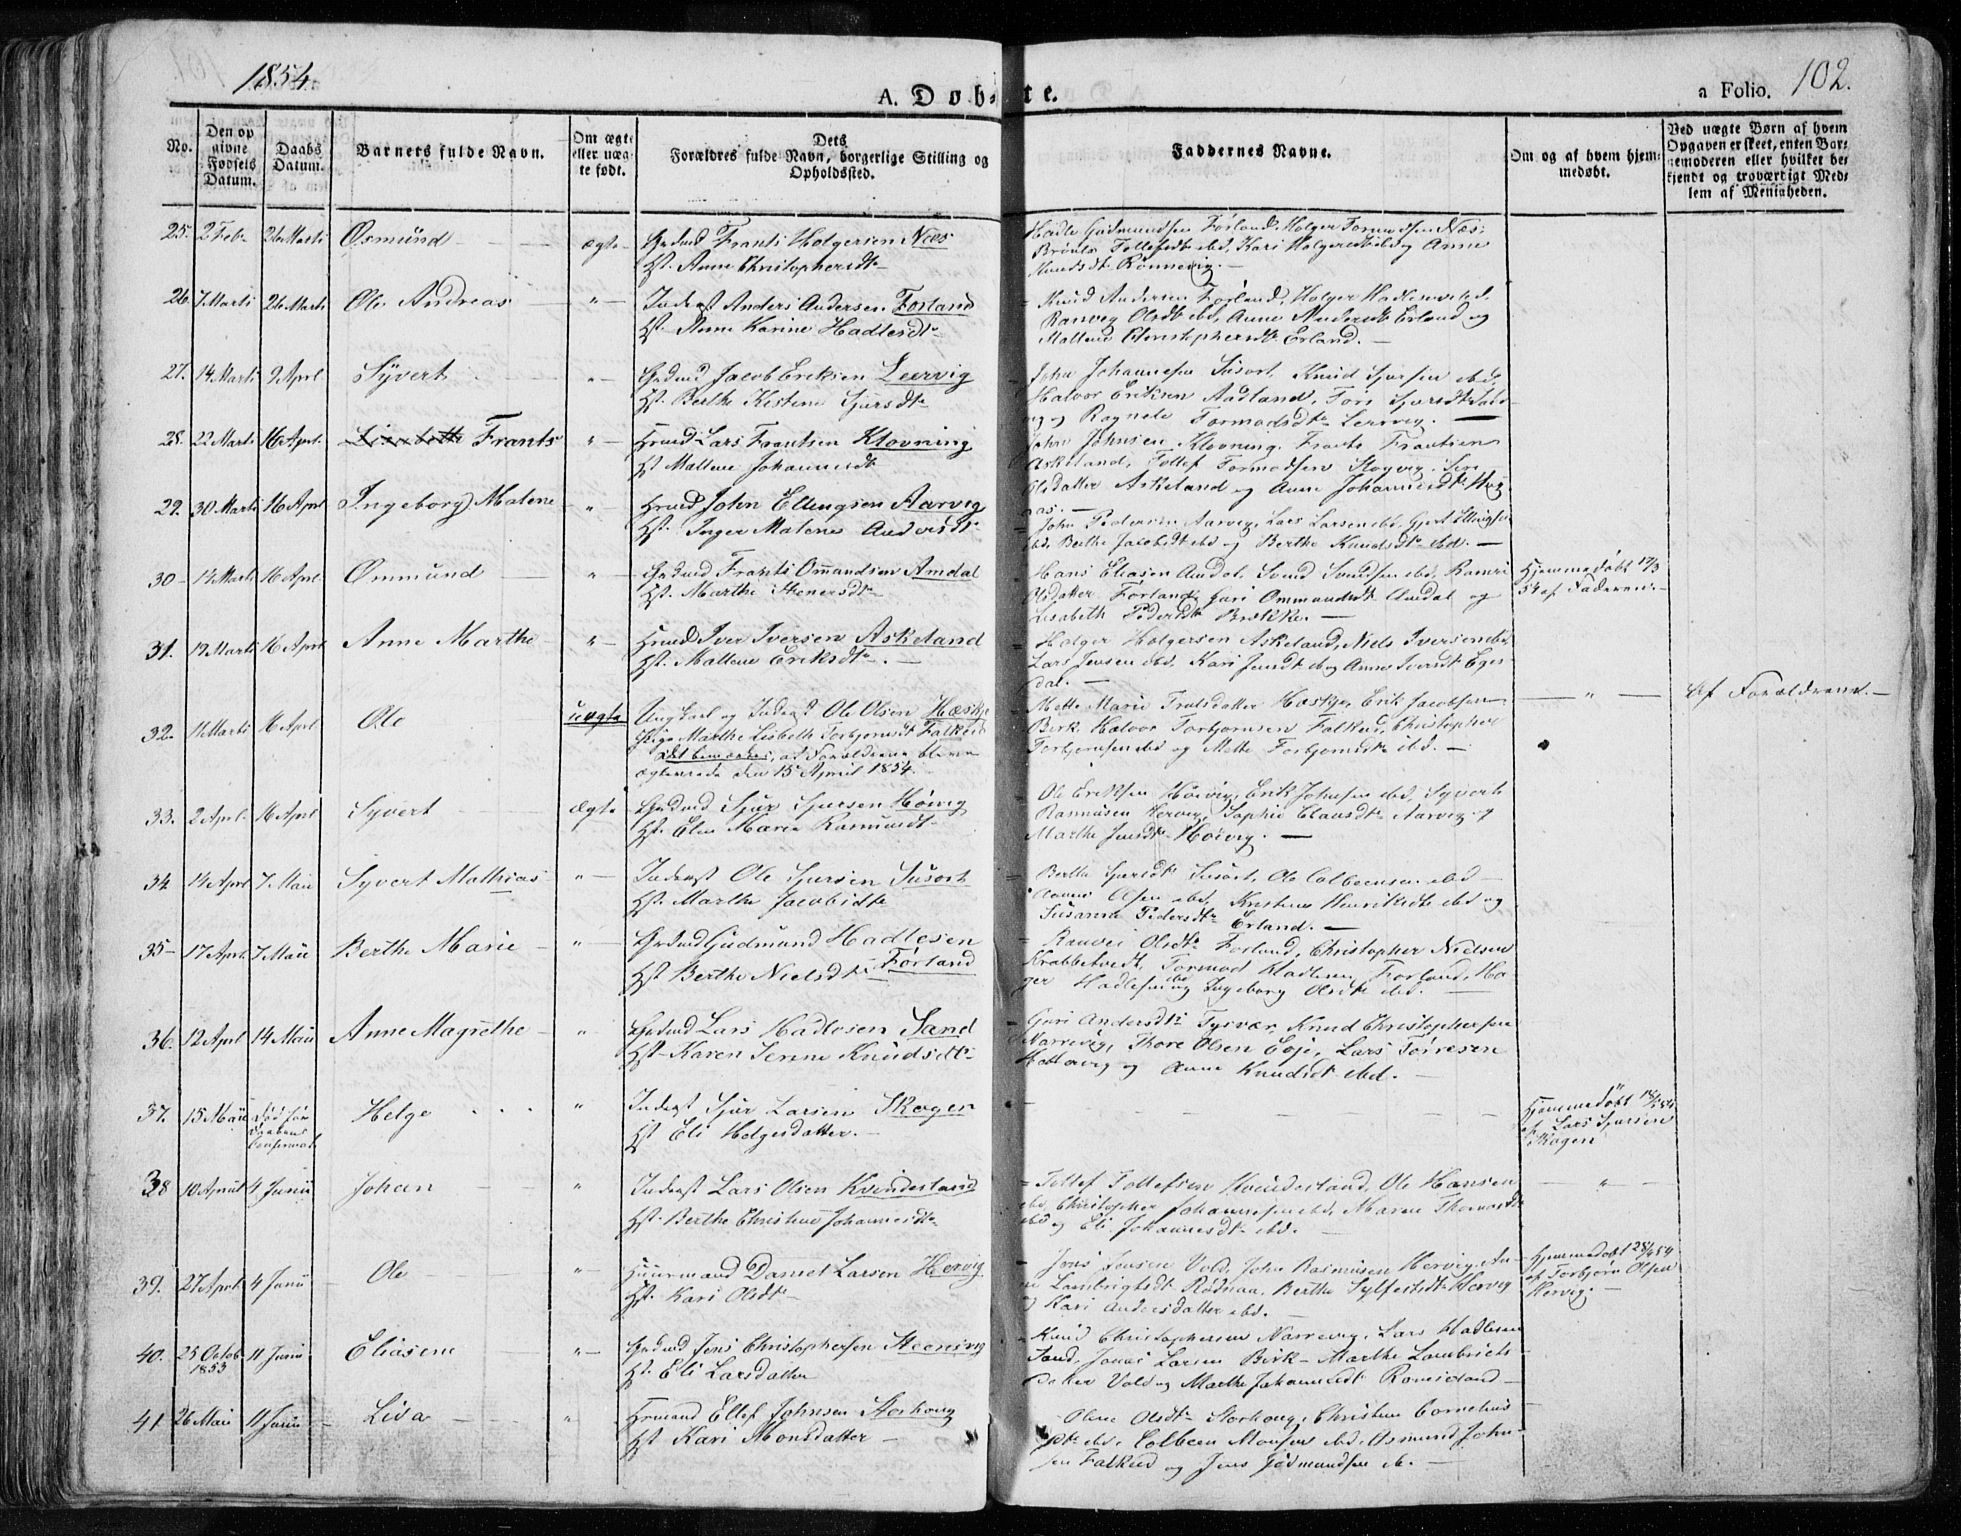 1854.
A. Døbte.
a Folio. 102.
No.
Den opgivne Fødsels Datum.
Daabs Datum.
Barnets fulde Navn.
Om ægte eller uægte født.
Dets Forældres fulde Navn, borgerlige Stilling og Opholdssted.
Faddernes Navne.
Om og af hvem hjemmedøbt.
Ved uægte Børn af hvem Opgaven er skeet, enten Barnemoderen eller hvilket bekjendt og troværdigt Medlem af Menigheden.
25. 2 Feb. 26 Marti Osmund ægte Grdmd Frants Holgersen Næs
Hst. Anne Christophersdt.
Hadle Gudmundsen Førland, Holger Tormodsen Næs,
Kari Holgersdt ibid og Anne
Knudsdt. Rønnevig.
26. 7 Marti 26 Marti Ole Andreas " Inderst Anders Andersen Førland
Hst. Anne Karine Hadlesdt.
Knud Andersen Førland, Holger Hadlesen ibd,
Ranveg Olsdt ibd, Anne Andersdt Erland og
Mallene Christophersdt. Erland.
27. 14 Marti 9 Aprl Syvert " Grdmd Jacob Eriksen Leervig
Hst. Berthe Kistine Sjursdt.
John Johannesen Susort, Knud Sjursen ibd,
Halvor Eriksen Aadland,
og Ragnele Tormodsdt. Leervig.
28. 22 Marti 16 Aprl. Lisabeth Frants " Hmd Lars Frantsen Klovning
Hst Mallene Johannesdt
John Johnsen Klovning, Frants Frantsen
Askeland, Tollef Tormodsen Stegvig, Siri
Olsdatter Askeland og Anne Johannesdt.
29. 30 Marti 16 Aprl Ingeborg Malene " Hmd John Ellingsen Aarvig
Hst. Inger Malene Andersdt.
John Pedersen Aarvig, Lars Larsen ibd, Gjert Ellingsen
ibd, Berthe Jacobsdt ibd og Berthe Knudsdt. ibd.
30 14 Marti 16 Aprl. Ommund " Grdmd Frants Ommundsen Amdal
Hst. Marthe Stenersdt.
Hans Eliasen Amdal, Svend Svendsen ibd,
Olsdatter Førland, Guri Ommundsdt. Amdal og
Lisabeth Pedersdt. Brekke
Hjemmedøbt 17/3
54 af Faderen.
31. 19 Marti 16 Aprl Anne Marthe " Hmd Iver Iversen Askeland
Hst. Mallene Eriksdt.
Holger Holgersen Askeland, Niels Iversen ibd,
Lars Jensen ibd, Kari Jensdt ibd og Anne Iversdt Egesdal.
32. 11 Marti 16 Aprl Ole uægte Ungkarl og Inderst Ole Olsen Hæskje
Pige Marthe Lisbeth Torbjørnsdt Falkeid
Det bemærkes, at Forældrene bleve
ægteviede den 15 April 1854.
Mette Marie Trulsdatter Hæskje, Erik Jacobsen
Birk, Halvor Torbjørnsen Falkeid, Christopher
Torbjørnsen ibd og Mette Torbjørnsdt. ibd.
"
Af Forældrene.
33. 2 Aprl. 16 Aprl Syvert ægte Grdmd Sjur Sjursen Høivig
Hst. Elen Marie Rasmusdt.
Ole Eriksen Høivig, Erik Johnsen ibd, Syvert
Rasmusen Hervig, Sophie Clausdt. Aarvig og
Marthe Jensdt. Høivig.
34 14 Aprl 7 Maii Syvert Mathias " Inderst Ole Sjursen Susort
Hst. Marthe Jacobsdt.
Berthe Sjursdt. Susort, Ole Colbeensen ibd
Olsen ibd, Kristense Henriksdt. ibd og
Susanne Pedersdt. Erland.
35 17 Aprl. 7 Maii Berthe Marie " Grdmd Gudmund Hadlesen
Førland
Hst Berthe Nielsdt.
Ranvei Olsdt. Førland, Christopher Nielsen
Krabbetvedt, Tormod Hadlesen Førland, Holger
Hadlesen ibd og Ingeborg Olsdt. ibd.
36. 12 Aprl 14 Maii Anne Magrethe " Grdmd Lars Hadlesen Sand
Hst. Karen Serine Knudsdt.
Guri Andersdt. Tysvær, Knud Christophersen
Narrevig, Thore Olsen Eoje, Lars Torresen
og Anne Knudsdt ibd.
37. 15 Maii død før Daabens Confirmat. Helge " Inderst Sjur Larsen Skogen
Hst Eli Helgesdatter.
Hjemmedøbt
af Lars Sjursen
Skogen
38 10 April 4 Junii Johan " Inderst Lars Olsen Kvinnesland
Hst. Berthe Christine Johannesdt.
Tollef Tollefsen Kvinnesland, Ole Hansen
ibd, Christopher Johannesen ibd, Maren Thomasdt
ibd og Eli Johannesdt. ibd.
"
39. 27 Aprl. 4 Junii Ole " Huusmand Daniel Larsen Hervig
Hst. Kari Olsdt.
Jens Jensen Vold, John Rasmusen Hervig,
Lambrigtsdt Rødnaa, Berthe Sylfestsdt. Hervig
og Kari Andersdatter ibd.
Hjemmedøbt 28/4 54
af Torbjørn Olsen
Hervig.
40. 25 Octob. 1853 11 Junii Eliasine " Grdmd Jens Christophersen Steensvig
Hst. Eli Larsdatter
Knud Christophersen Narrevig, Lars Hadlesen
Sand, Jonas Larsen Birk, Marthe Lambrichtsdatter
Vold og Marthe Johannesdt.
41 26 Maii 11 Junii Lisa " Hmand Ellef Johnsen Storhoug
Hst Kari Monsdatter
Oline Olsdt. Storhoug, Christine Corneliusdt.
ibd, Colbeen Monsen ibd, Osmund Johnsen
Falkeid og Jens Godmundsen ib.